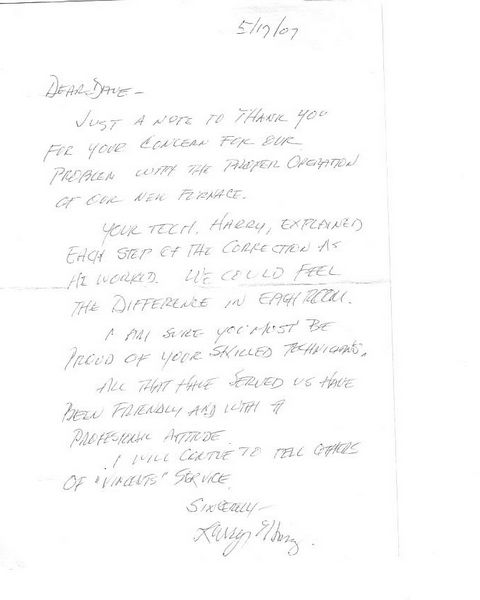 5/17/07
DEAR DAVE -
JUST A NOTE TO THANK YOU
FOR YOUR CONCERN FOR OUR
PROBLEM WITH THE PROPER OPERATION
OF OUR NEW FURNACE.
YOUR TECH. HARRY, EXPLAINED
EACH STEP OF THE CORRECTION AS
HE WORKED. WE COULD FEEL
THE DIFFERENCE IN EACH ROOM.
I AM SURE YOU MUST BE
PROUD OF YOUR SKILLED TECHNICIANS.
ALL THAT HAVE SERVED US HAVE
BEEN FRIENDLY AND WITH A
PROFESIONAL ATTITUDE.
I WILL CONTUE TO TELL OTHERS
OF "VINCENTS" SERVICE.
SINCERELY -
Larry